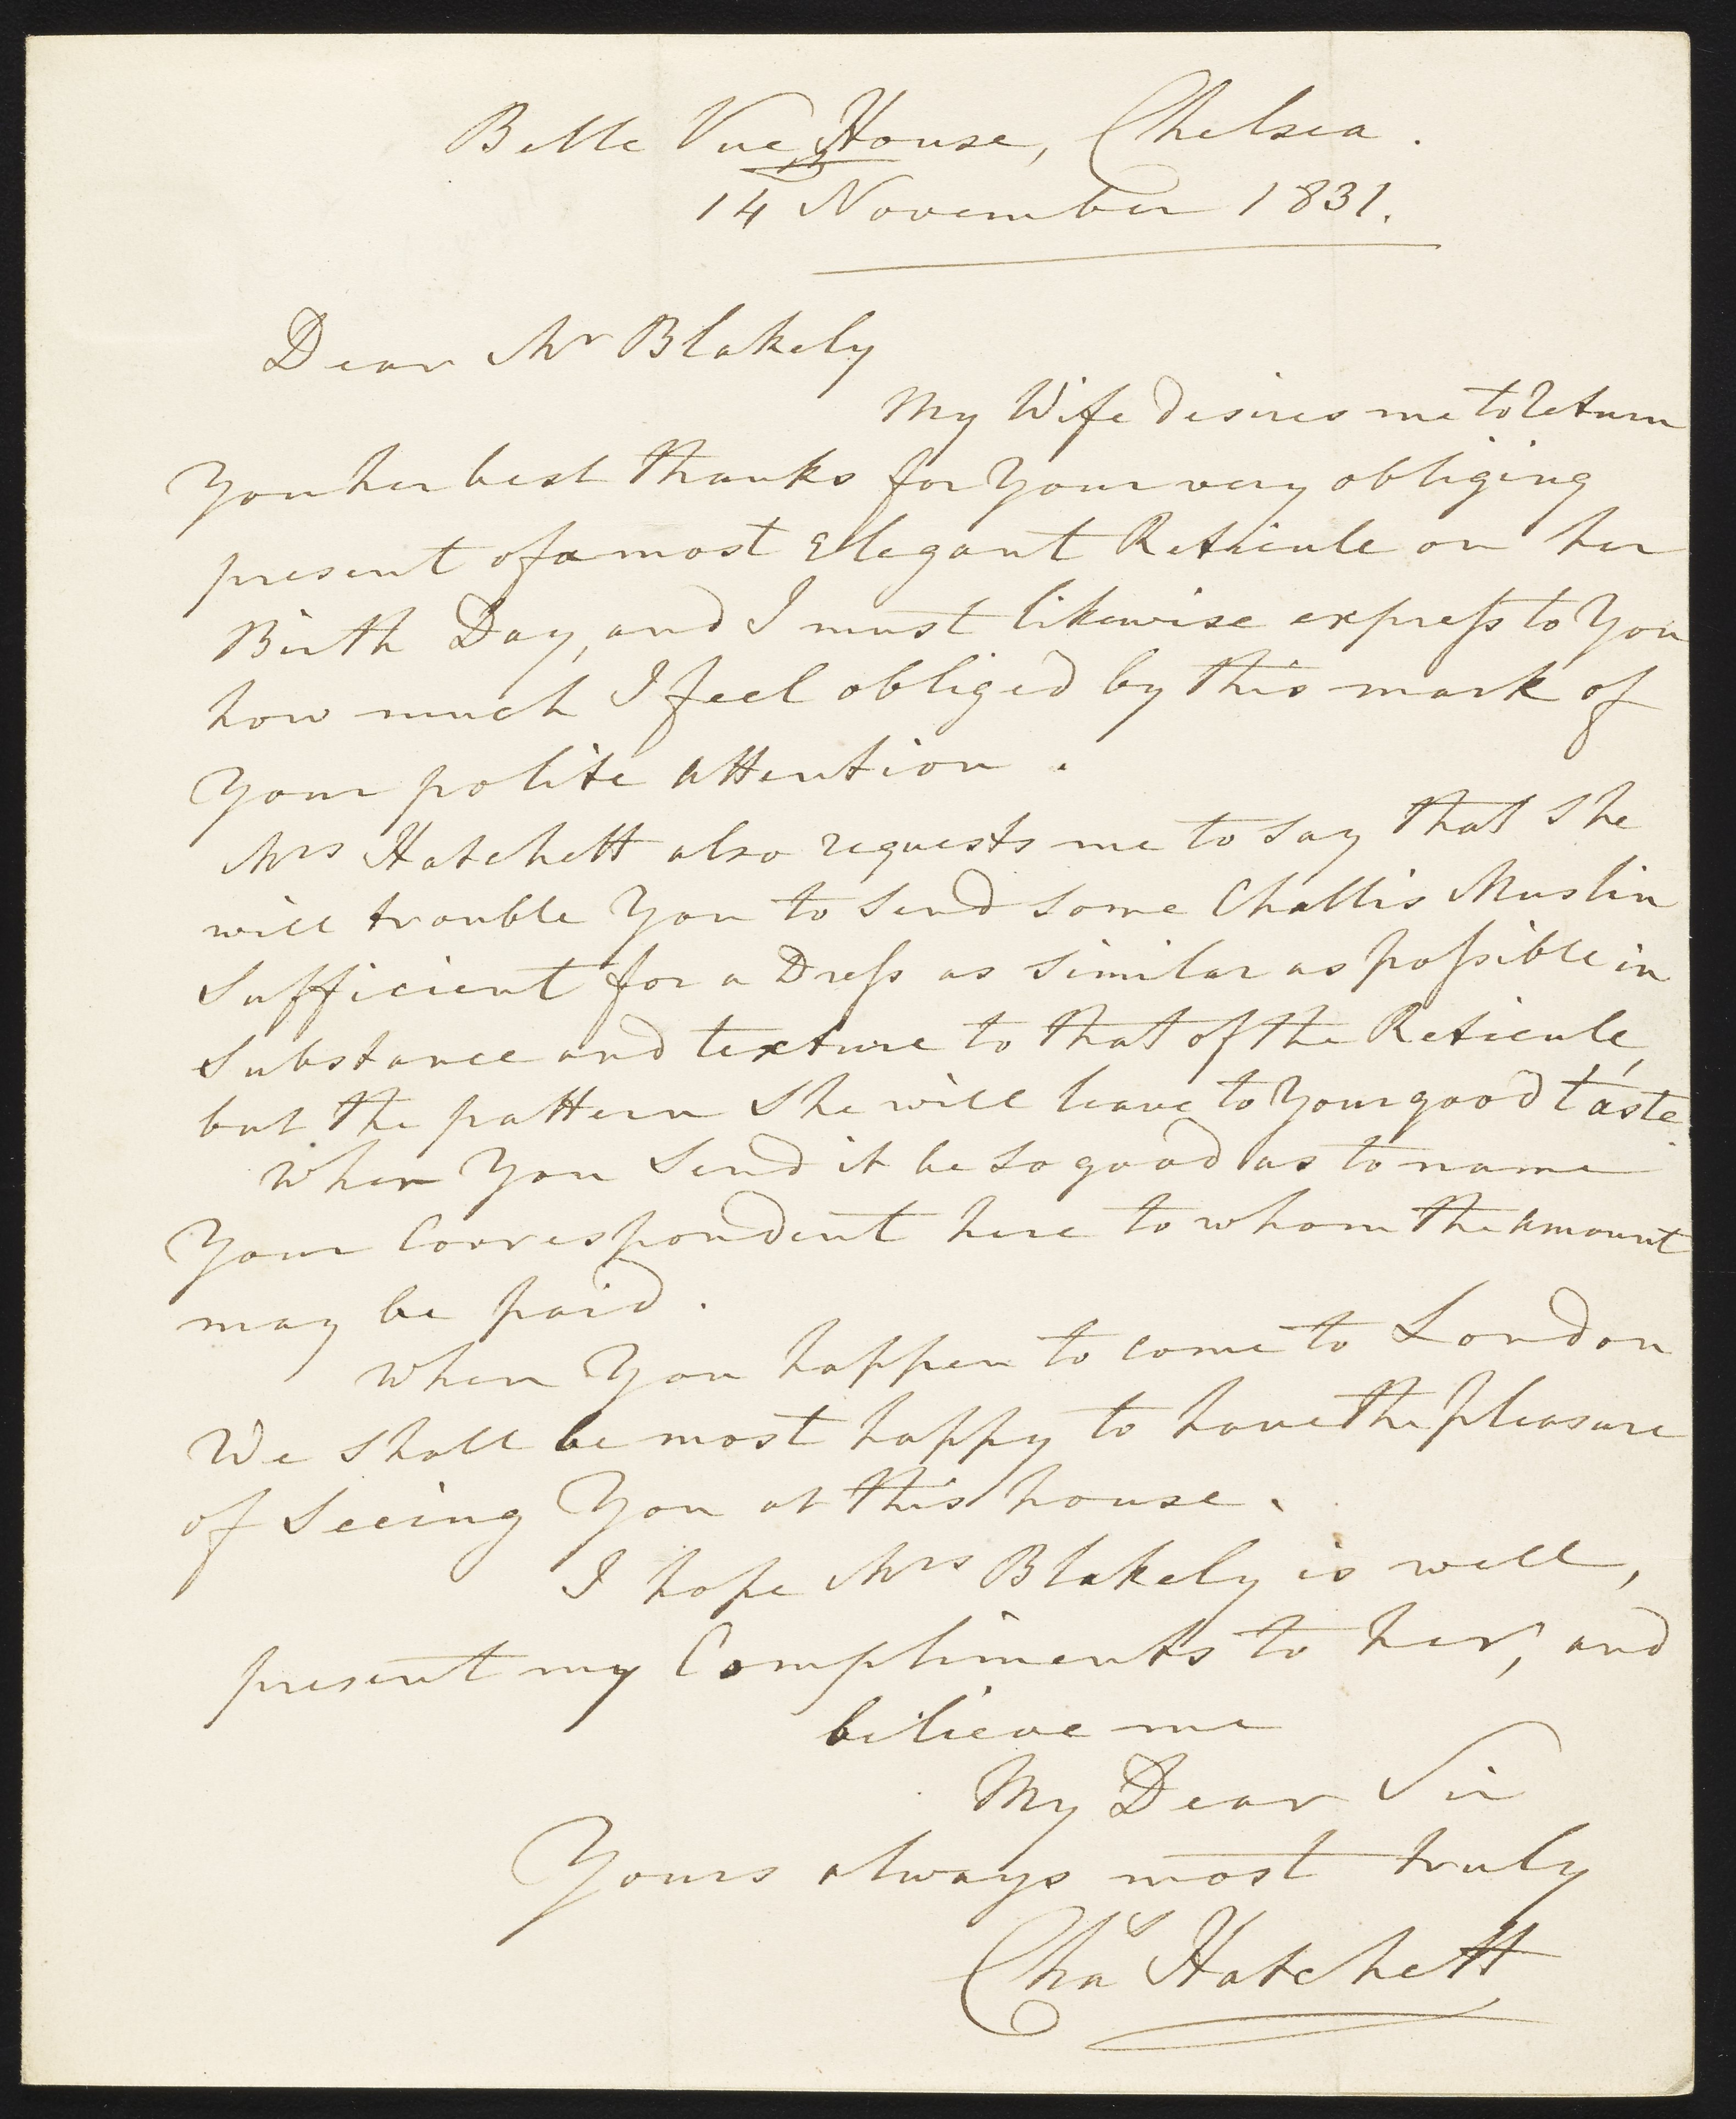 Belle Vue House, Chelsea.
14 November 1831.
Dear Mr Blakely
My Wife desires me to return
You her best thanks for Your very obliging
present of a most Elegant Reticule on her
Birth Day, and I must likewise expreſs to You
how much I feel obliged by this mark of
Your polite attention.
Mrs Hatchett also requests me to say that she
will trouble You to send some Challis Muslin
Sufficient for a Dreſs as similar as poſsible in
Substance and texture to that of the Reticule,
but the pattern she will leave to Your good taste.
When You Send it be so good as to name
Your Correspondent here to whom the amount
may be paid.
When You happen to come to London
We shall be most happy to have the pleasure
of Seeing You at this house.
I hope Mrs Blakely is well,
present my Compliments to her, and
believe me
My Dear Sir
Yours always most truly
Chas Hatchett